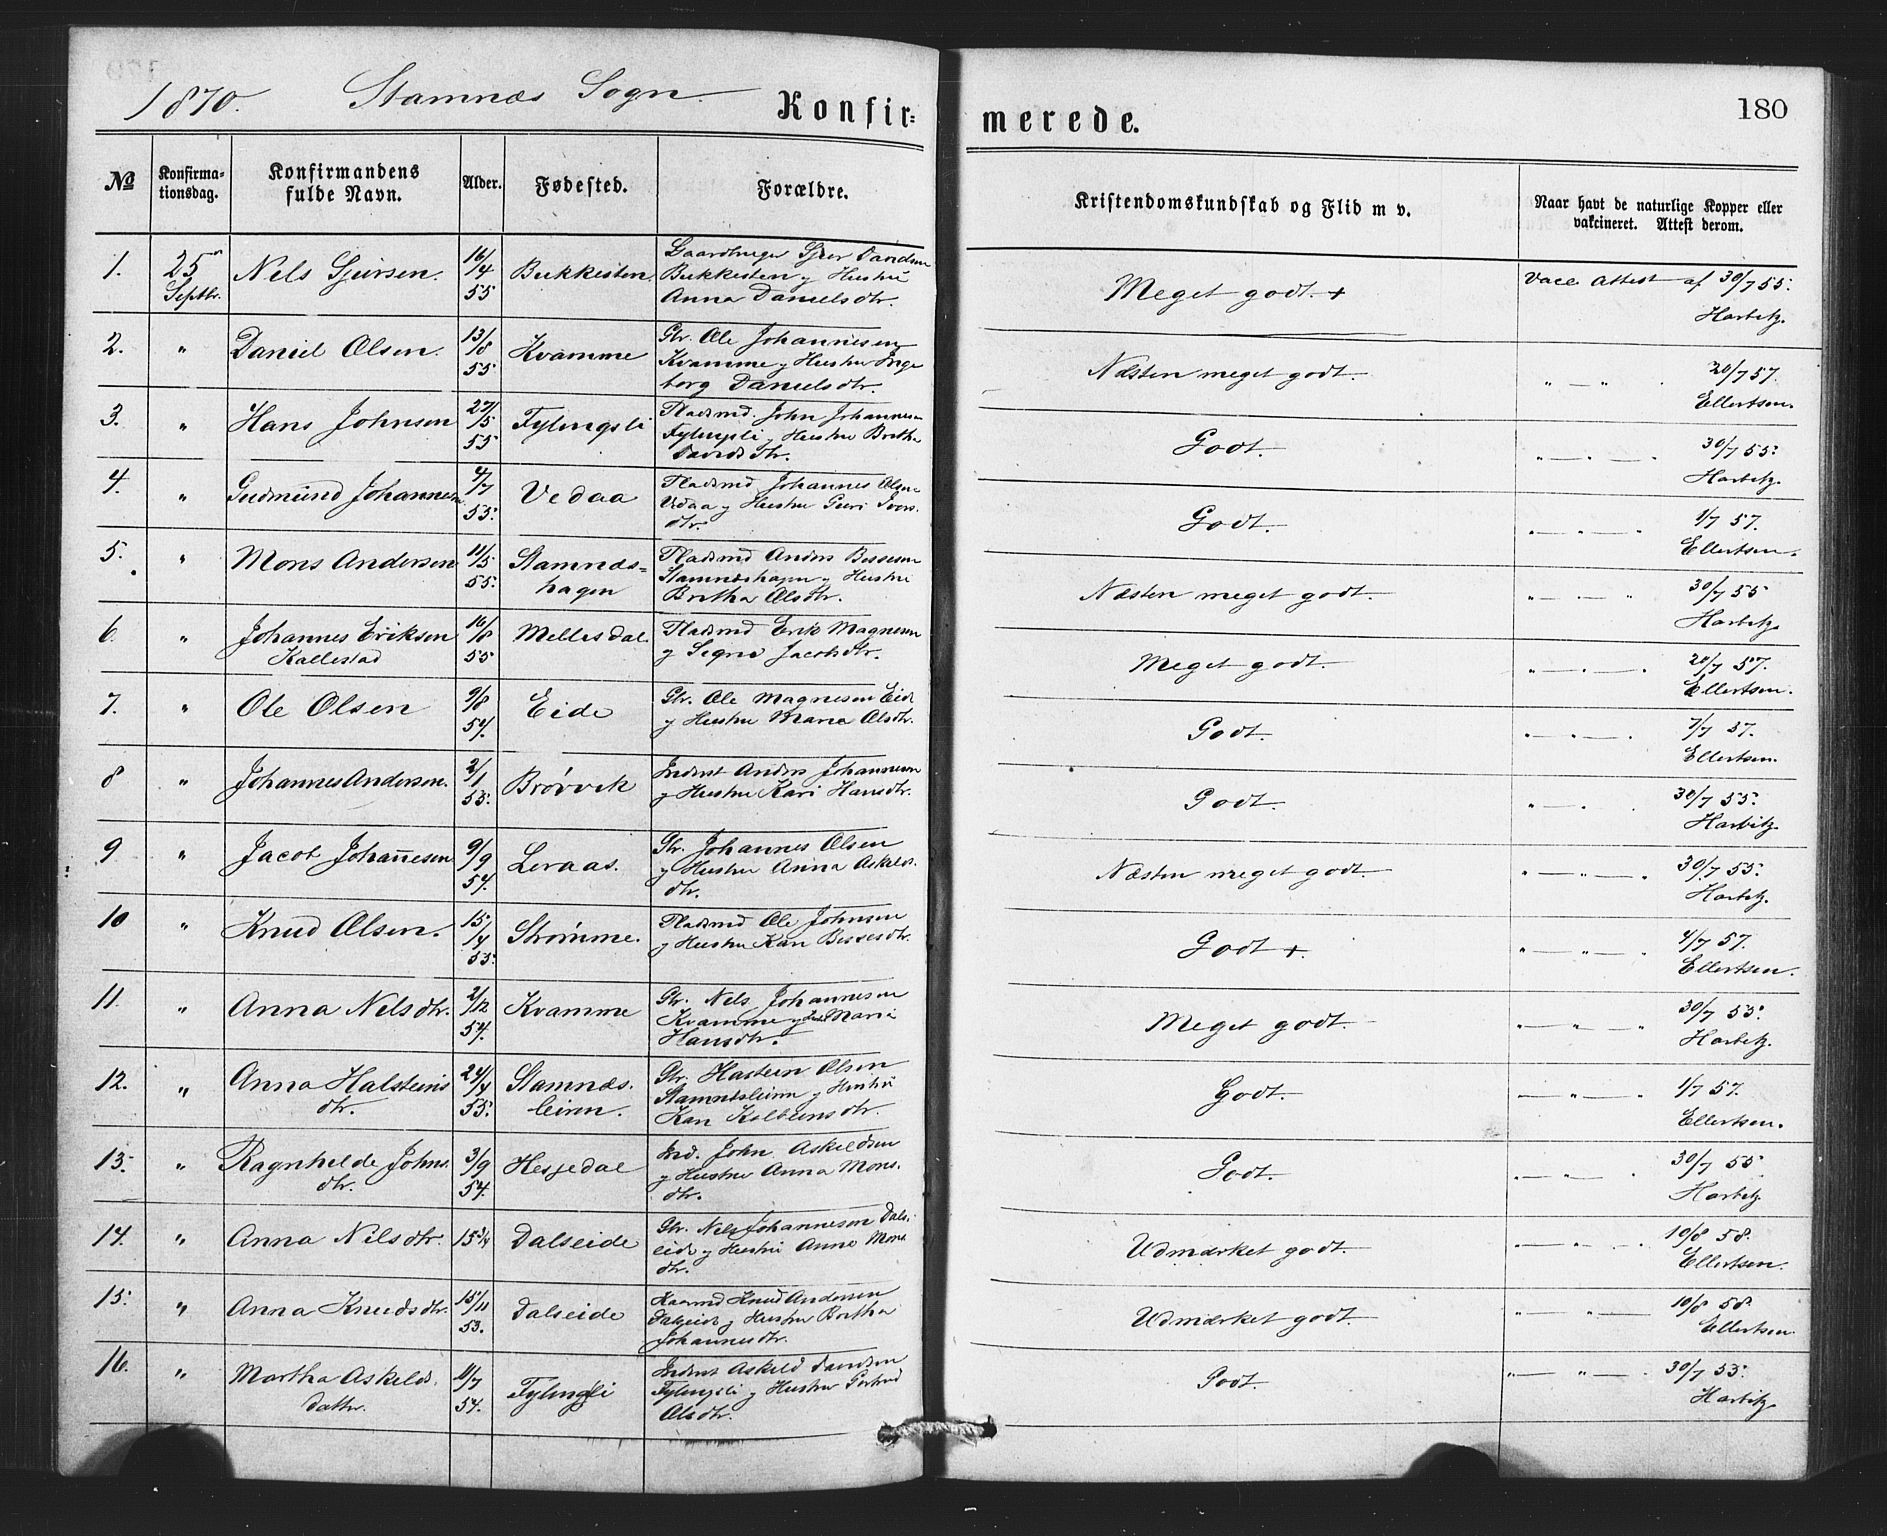 1870. Stamnæs Sogn.
Konfir=
merede.
180
No
Konfirma-
tionsdag.
Konfirmandens
fulde Navn.
Alder.
Fødested.
Forældre.
Kristendomskundskab og Flid m v.
Naar havt de naturlige Kopper eller
vakcineret. Attest derom.
1. 25 Septbr. Nels Sjursen. 16/4 55 Bukkesten
Gaardbruger Sjur Davidsen
Bukkesten og Hustru
Anna Danielsdtr.
Meget godt. +
Vacc Attest af 30/7 55.
Harbitz.
2. " Daniel Olsen. 13/8 55 Kvamme
Gbr. Ole Johannesen
Kvamme og Hustru Inge
borg Danielsdtr.
Næsten meget godt.
" — " 20/7 57.
Ellertsen.
3. " Hans Johnsen 27/5 55 Fylingsli
Pladsmd. John Johannesen
Fylingsli og Hustru Britha
Davidsdtr.
Godt.
" — " — 30/7 55.
Harbitz.
4. " Gudmund Johannesen 4/7 55. Vedaa
Pladsmd Johannes Olsen
Vedaa og Hustru Guri Ivers.
dtr.
Godt.
" — " — " 1/7 57.
Ellertsen.
5. " Mons Andersen 11/5 55. Stamnæs=
hagen
Pladsmd Anders Bessesen
Stamnæshagen og Hustru
Britha Olsdtr.
Næsten meget godt.
" — " — " 30/7 55
Harbitz
6. " Johannes Eriksen
Kallestad
16/8 55 Mellesdal
Pladsmd Erik Magnesen
og Signe Jacobsdtr.
Meget godt.
" — " — " 20/7 57.
Ellertsen.
7. " Ole Olsen 9/8 54. Eide
Gbr. Ole Magnesen Eide
og Hustru Maria Olsdtr.
Godt.
" — " — " 7/7 57.
Ellertsen.
8 " Johannes Andersen. 2/1 55. Brøvvik
Inderst Anders Johannesen
og Hustru Kari Hansdtr.
Godt.
" — " 30/7 55.
Harbitz
9 " Jacob Johannesen 9/9 54. Leraas.
Gbr. Johannes Olsen
og Hustru Anna Askilds.
dtr.
Næsten meget godt.
" — " — " 30/7 55.
Harbitz.
10 " Knud Olsen. 15/4 55. Strømme.
Pladsmd Ole Johnsen
og Hustru Kari Bessesdtr.
Godt +.
" — " — " 4/7 57.
Ellertsen.
11. " Anna Nelsdtr. 2/12 54. Kvamme
Gbr. Nels Johannesen
Kvamme og Hustru Maria
Hansdtr.
Meget godt.
" — " — " 30/7 55.
Harbitz.
12. " Anna Halsteins
dtr.
24/4 55. Stamnæs.
leiren.
Gbr. Hastein Olsen
Stamnæsleiren og Hustru
Kari Kolbeinsdtr.
Godt.
" — " — " 1/7 57.
Ellertsen.
13. " Ragnhilde Johns.
dtr.
3/9 54. Hesjedal
Ind. John Askildsen
og Hustru Anna Mons.
dtr.
Godt.
" — " — 30/7 55
Harbitz
14. " Anna Nilsdtr. 15 3/4 Dalseide
Gbr. Nels Johannesen Dals-
eide og Hustru Anna Mons
dtr.
Udmærket godt.
" — " 10/8 58.
Ellertsen.
15. " Anna Knudsdtr. 15/11 53. Dalseide
Kaarmd Knud Andersen
Dalseide og Hustru Britha
Johannesdtr.
Udmærket godt.
" — " — 10/8 58.
Ellertsen
16. " Martha Askilds.
datter.
11/7 54. Fylingsli
Inderst Askild Davidsen
Fylingsli og Hustru Gertrud
Olsdtr.
Godt.
" — " — 30/7 55.
Harbitz